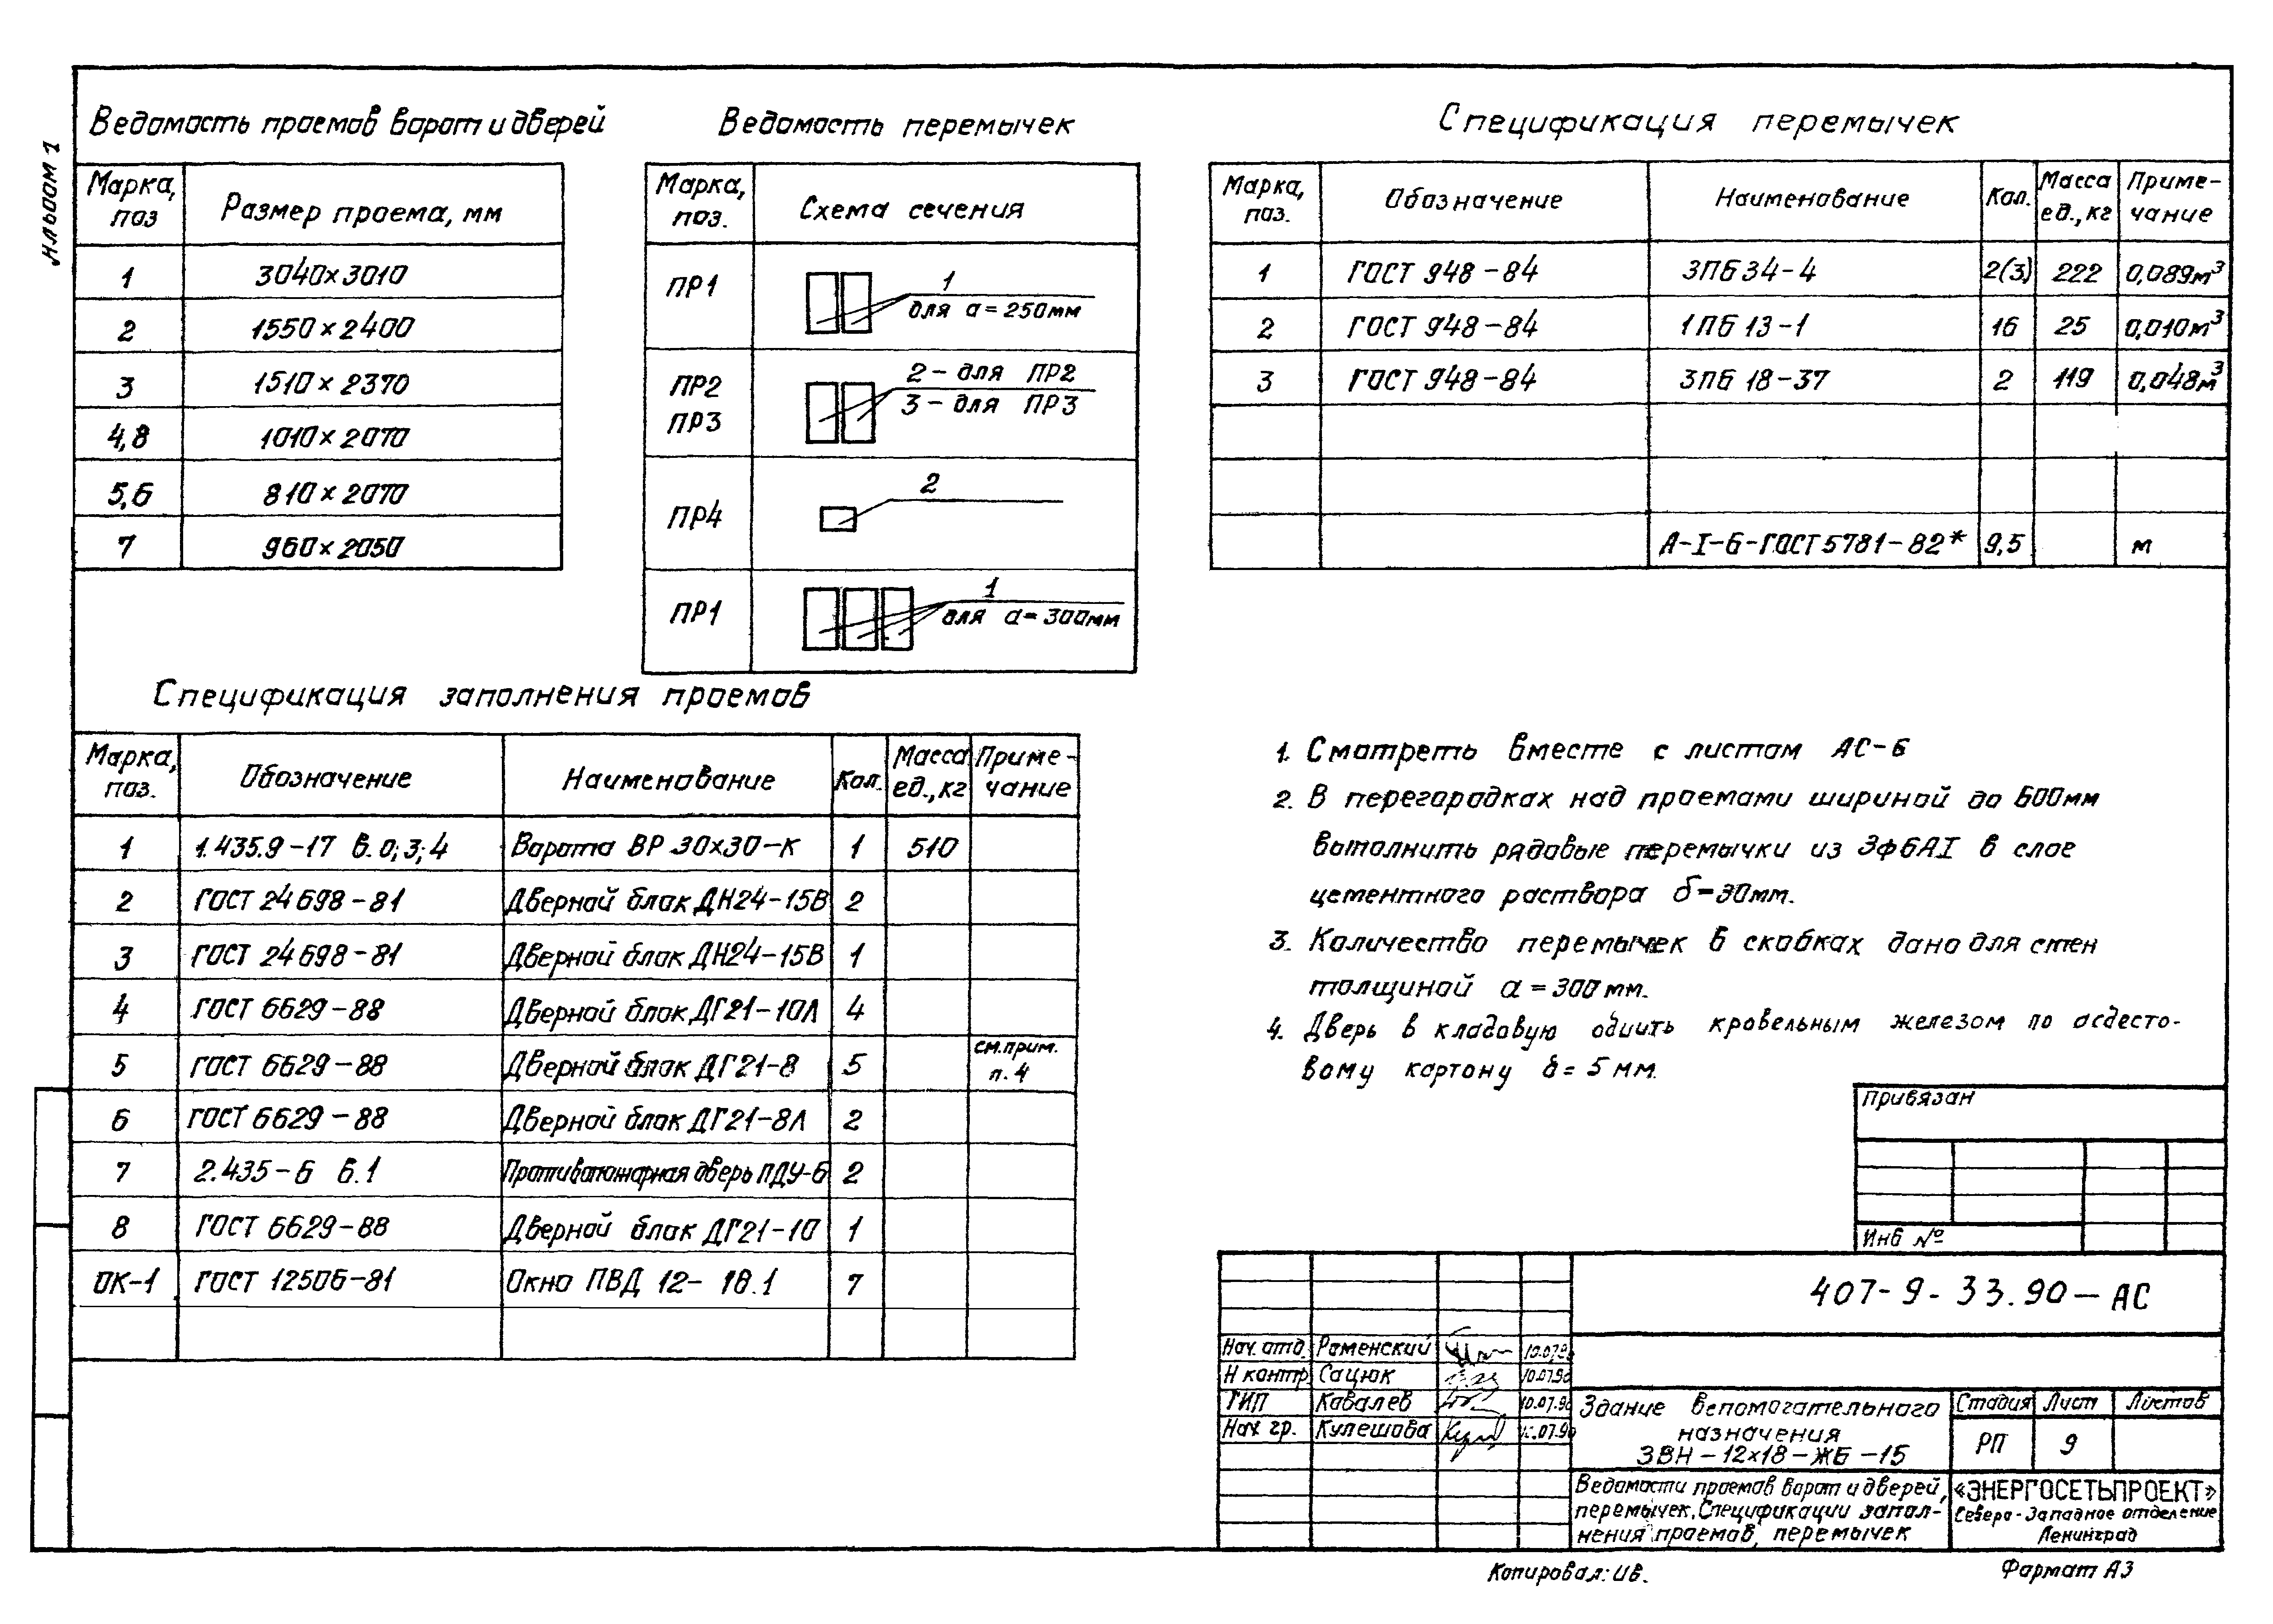 Альбом 1
Ведомость проемов ворот и дверей
Марка, поз | Размер проема, мм
1 | 3040×3010
2 | 1550×2400
3 | 1510×2370
4,8 | 1010×2070
5,6 | 810×2070
7 | 960×2050
Ведомость перемычек
Марка, поз. | Схема сечения
ПР1 | 1
для а=250мм
ПР2 ПР3 | 2 – для ПР2
3 – для ПР3
ПР4 | 2
ПР1 | 1
для а=300мм
Спецификация перемычек
Марка, поз. | Обозначение | Наименование | Кол. | Масса ед., кг | Приме-чание
1 | ГОСТ 948-84 | 3ПБ34-4 | 2(3) | 222 | 0,089м³
2 | ГОСТ 948-84 | 1ПБ13-1 | 16 | 25 | 0,010м³
3 | ГОСТ 948-84 | 3ПБ18-37 | 2 | 119 | 0,048м³
А-I-6-ГОСТ 5781-82* | 9,5 | м
Спецификация заполнения проемов
Марка, поз. | Обозначение | Наименование | Кол. | Масса ед., кг | Приме-чание
1 | 1.435.9-17 в.0;3;4 | Ворота ВР 30×30-К | 1 | 510
2 | ГОСТ 24698-81 | Дверной блок ДН24-15В | 2
3 | ГОСТ 24698-81 | Дверной блок ДН24-15В | 1
4 | ГОСТ 6629-88 | Дверной блок ДГ21-10Л | 4
5 | ГОСТ 6629-88 | Дверной блок ДГ21-8 | 5 | см.прим. п.4
6 | ГОСТ 6629-88 | Дверной блок ДГ21-8Л | 2
7 | 2.435-6 в.1 | Противопожарная дверь ПДУ-6 | 2
8 | ГОСТ 6629-88 | Дверной блок ДГ21-10 | 1
ОК-1 | ГОСТ 12506-81 | Окно ПВД 12-18.1 | 7
1. Смотреть вместе с листом АС-6
2. В перегородках над проемами шириной до 600мм
выполнить рядовые перемычки из 3ф6АI в слое
цементного раствора δ=30мм.
3. Количество перемычек в скобках дано для стен
толщиной а=300мм.
4. Дверь в кладовую обить кровельным железом по асбесто-
вому картону δ=5мм.
Привязан
Инв №
407-9-33.90-АС
Нач. отд. Роменский 10.07.90
Н контр. Сацюк 10.07.90
ГИП Ковалев 10.07.90
Нач. гр. Кулешова 10.07.90
Здание вспомогательного
назначения
ЗВН-12×18-ЖБ-15
Стадия | Лист | Листов
РП | 9
Ведомости проемов ворот и дверей,
перемычек, Спецификации запол-
нения проемов, перемычек
«ЭНЕРГОСЕТЬПРОЕКТ»
Северо-Западное отделение
Ленинград
Копировал: Ив.
Формат А3